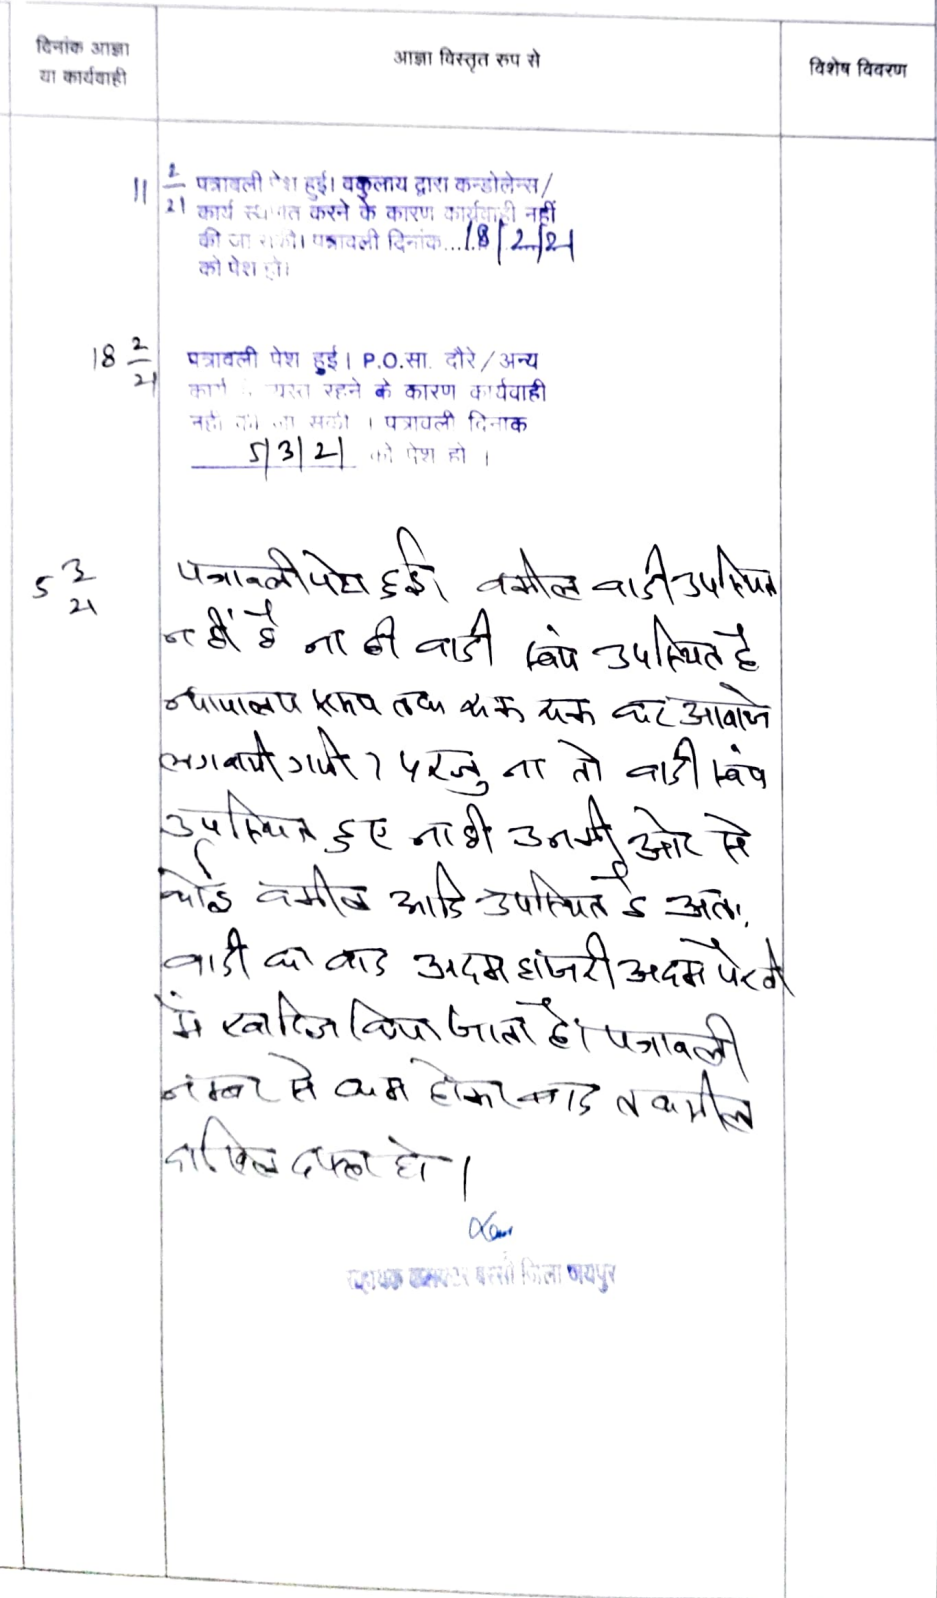 दिनांक आज्ञा
या कार्यवाही
आज्ञा विस्तृत रुप से
विशेष विवरण
11 2/21 पत्रावली पेश हुई। वकुलाय द्वारा कन्डोलेन्स/
कार्य स्थगित करने के कारण कार्यवाही नहीं
की जा सकी। पत्रावली दिनांक...18/2/21
को पेश हो।
18 2/21 पत्रावली पेश हुई। P.O.सा. दौरे/अन्य
कार्य में व्यस्त रहने के कारण कार्यवाही
नहीं की जा सकी । पत्रावली दिनाक
5/3/21 को पेश हो ।
5 3/21 पत्रावली पेश हुई। वकील वादी उपस्थित
नहीं है ना ही वादी स्वंय उपस्थित है
न्यायालय समय तक आवाजे
लगवायी गयी परन्तु ना तो वादी स्वंय
उपस्थित हुए ना ही उनकी ओर से
कोई वकील आदि उपस्थित है अतः
वादी का वाद अदम हाजरी अदम पैरवी
में खारिज किया जाता है। पत्रावली
नम्बर से कम होकर बाद तकमील
दाखिल दफ्तर हो।
सहायक कलक्टर बस्सी जिला जयपुर